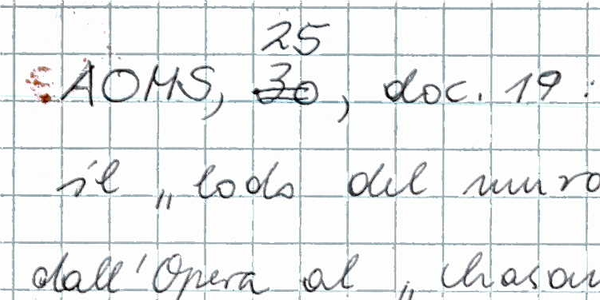 25
AOMS, 30, doc. 19:
il „lodo del muro
dall'Opera al „